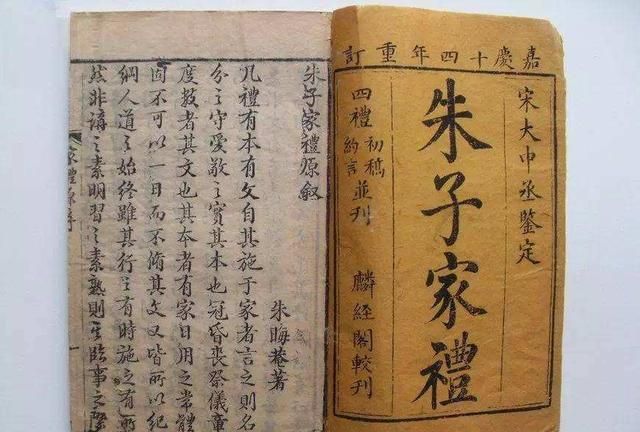 嘉慶十四年重訂
宋大中丞鑒定
朱子家禮
四禮初稿約言並刊 麟經閣較刊
朱子家禮原敘
朱晦菴著
凡禮有本有文自其施于家者言之則名
分之守愛敬之實其本也冠昏喪祭儀章
度數者其文也其本者有家日用之常體
固不可以一日而不脩其文又皆所以紀
綱人道之始終雖其行之有時施之有所
然非講之素明習之素熟則其臨事之際
家禮原序
一